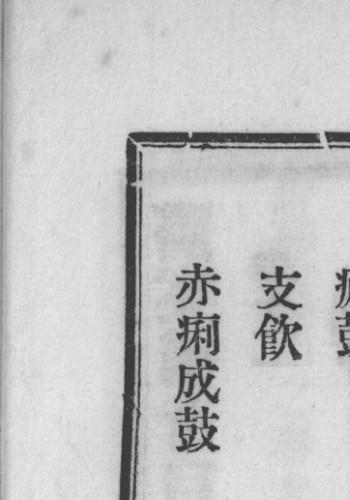 支飮
赤痢成鼓